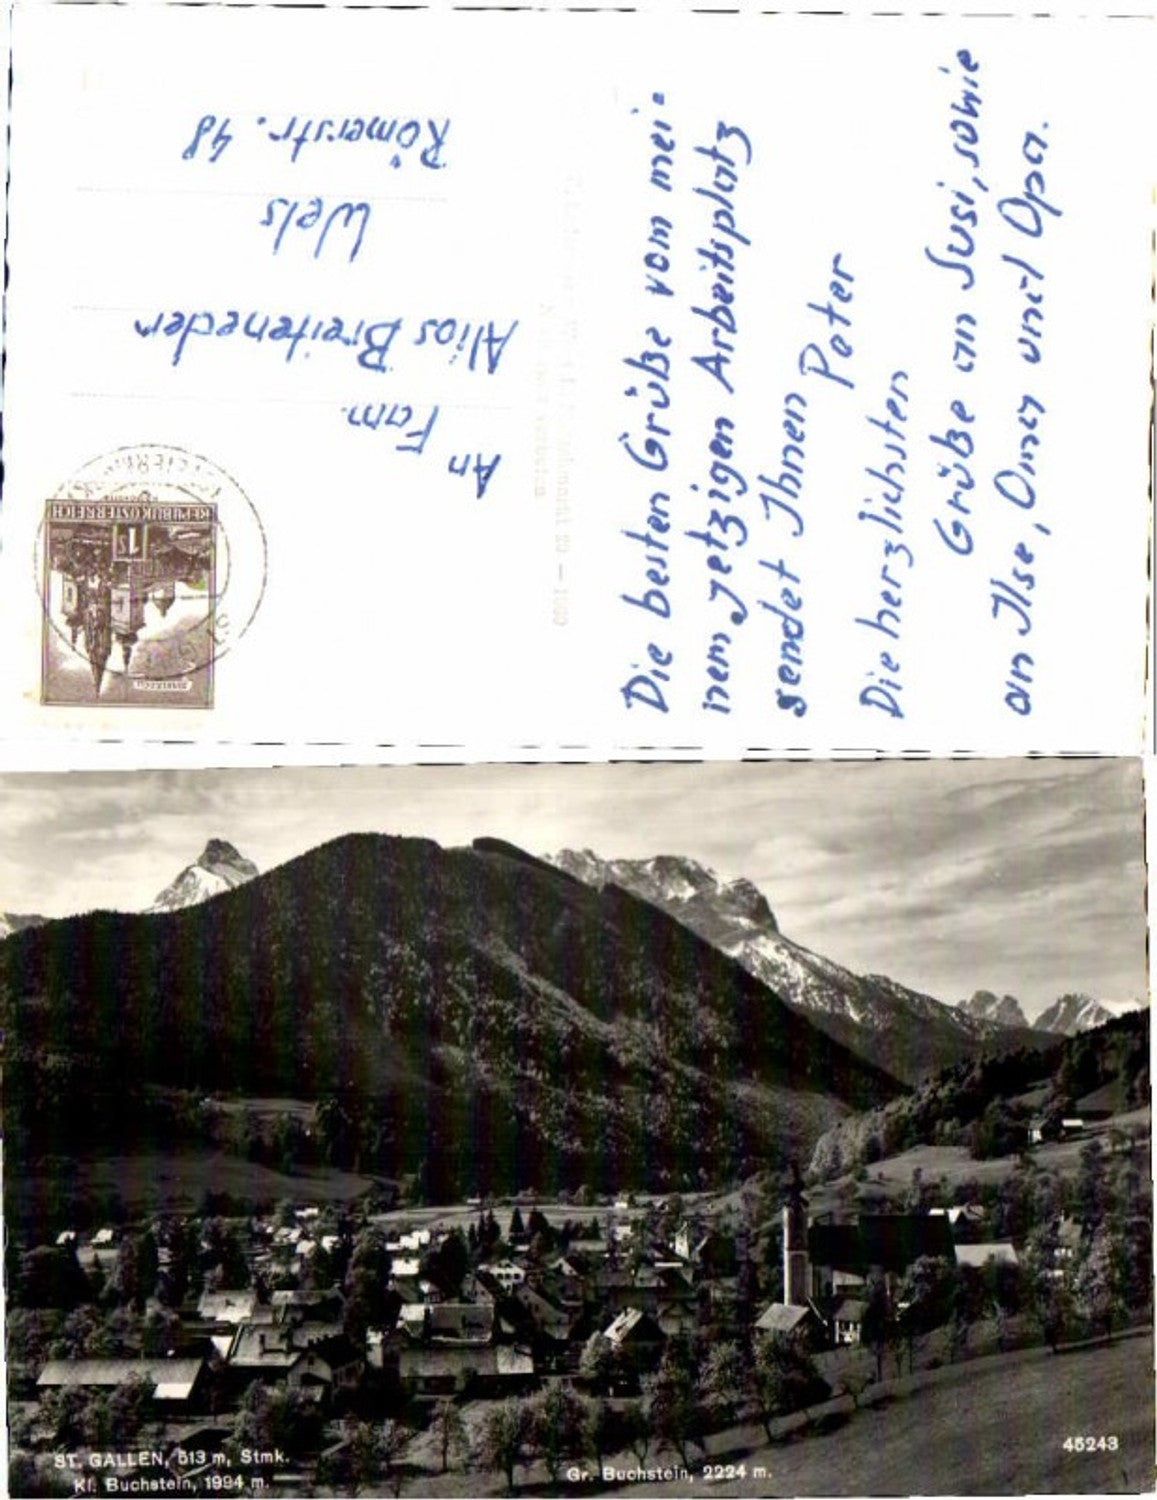 An
Fam.
Alios Breiteneder
Wels
Römerstr. 48
REPUBLIK ÖSTERREICH
1s
Die besten Grüße vom mei-
nem jetzigen Arbeitsplatz
sendet Ihnen Peter
Die herzlichsten
Grüße an Susi, sowie
an Ilse, Oma und Opa.
ST. GALLEN, 513 m, Stmk.
Kl. Buchstein, 1994 m.
Gr. Buchstein, 2224 m.
45243